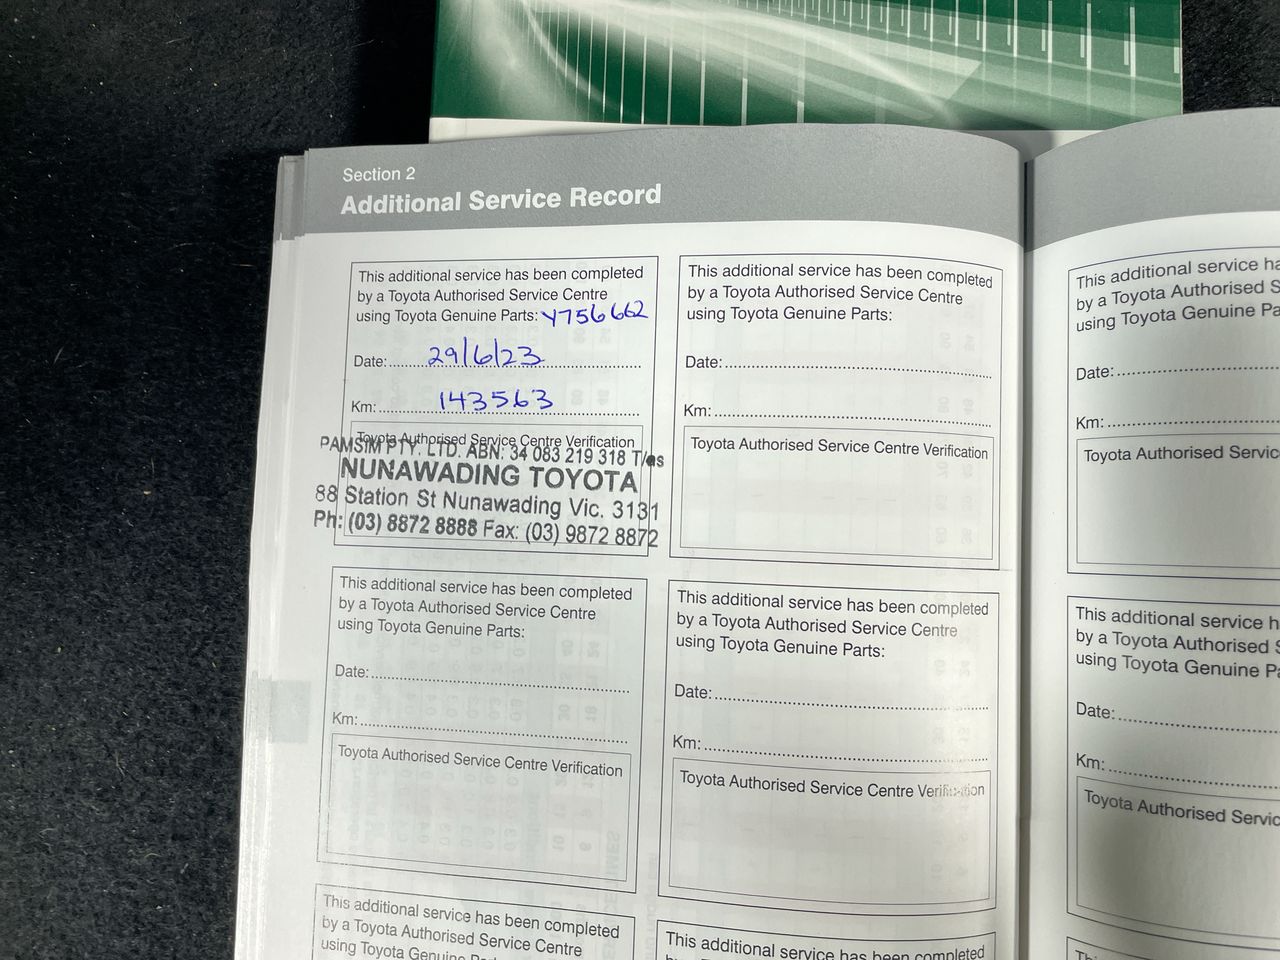 Section 2
Additional Service Record
This additional service has been completed
by a Toyota Authorised Service Centre
using Toyota Genuine Parts: Y756662
Date: 29/6/23
Km: 143563
Toyota Authorised Service Centre Verification
PAMSIM PTY. LTD. ABN: 34 083 219 318 T/as
NUNAWADING TOYOTA
88 Station St Nunawading Vic. 3131
Ph: (03) 8872 8888 Fax: (03) 9872 8872
This additional service has been completed
by a Toyota Authorised Service Centre
using Toyota Genuine Parts:
Date:
Km:
Toyota Authorised Service Centre Verification
This additional service has been completed
by a Toyota Authorised Service Centre
using Toyota Genuine Parts:
Date:
Km:
Toyota Authorised Service Centre Verification
This additional service has been completed
by a Toyota Authorised Service Centre
using Toyota Genuine Parts:
Date:
Km:
Toyota Authorised Service Centre Verification
This additional service has been completed
by a Toyota Authorised Service Centre
using Toyota Genuine
This additional service has been completed
This additional service
by a Toyota Authorised
using Toyota Genuine
Date:
Km:
Toyota Authorised
This additional service
by a Toyota Authorised
using Toyota Genuine
Date:
Km:
Toyota Authorised